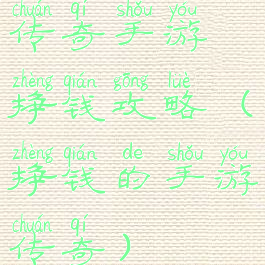 chuán qí shǒu yóu
传奇手游
zhèng qián gōng lüè
挣钱攻略（
zhèng qián de shǒu yóu
挣钱的手游
chuán qí
传奇）